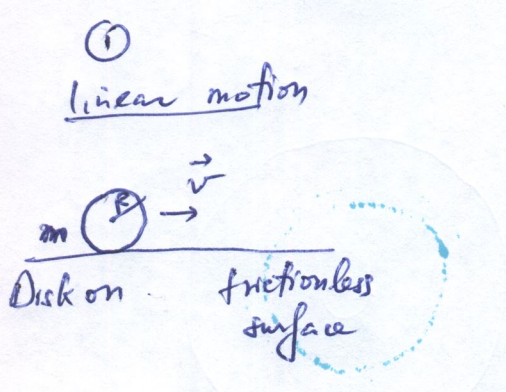 ①
linear motion
v
m R
Disk on frictionless
surface